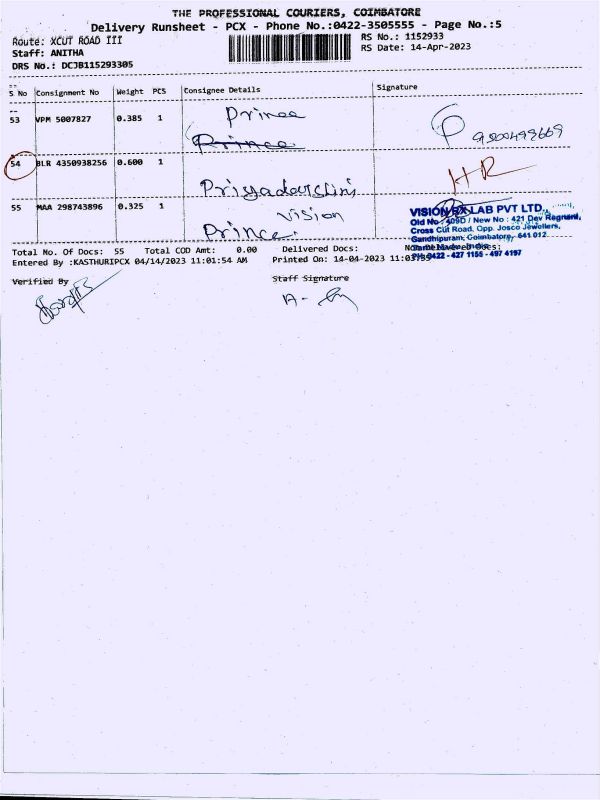 THE PROFESSIONAL COURIERS, COIMBATORE
Delivery Runsheet - PCX - Phone No.:0422-3505555 - Page No.:5
Route: XCUT ROAD III
RS No.: 1152933
Staff: ANITHA
RS Date: 14-Apr-2023
DRS No.: DCJB115293305
S No Consignment No Weight PCS Consignee Details Signature
53 VPM 5007827 0.385 1 Prince
Prince
54 BLR 4350938256 0.600 1 HR
Priyadarshini
55 MAA 298743896 0.325 1 Vision
Prince
VISION RX LAB PVT LTD.,
Old No : 409D / New No : 421 Dev Regnant,
Cross Cut Road, Opp. Josco Jewellers,
Gandhipuram, Coimbatore, 641 012
PH: 0422 - 427 1155 - 497 4197
Total No. Of Docs: 55 Total COD Amt: 0.00 Delivered Docs:
Entered By :KASTHURIPCX 04/14/2023 11:01:54 AM Printed On: 14-04-2023
Verified By Staff Signature